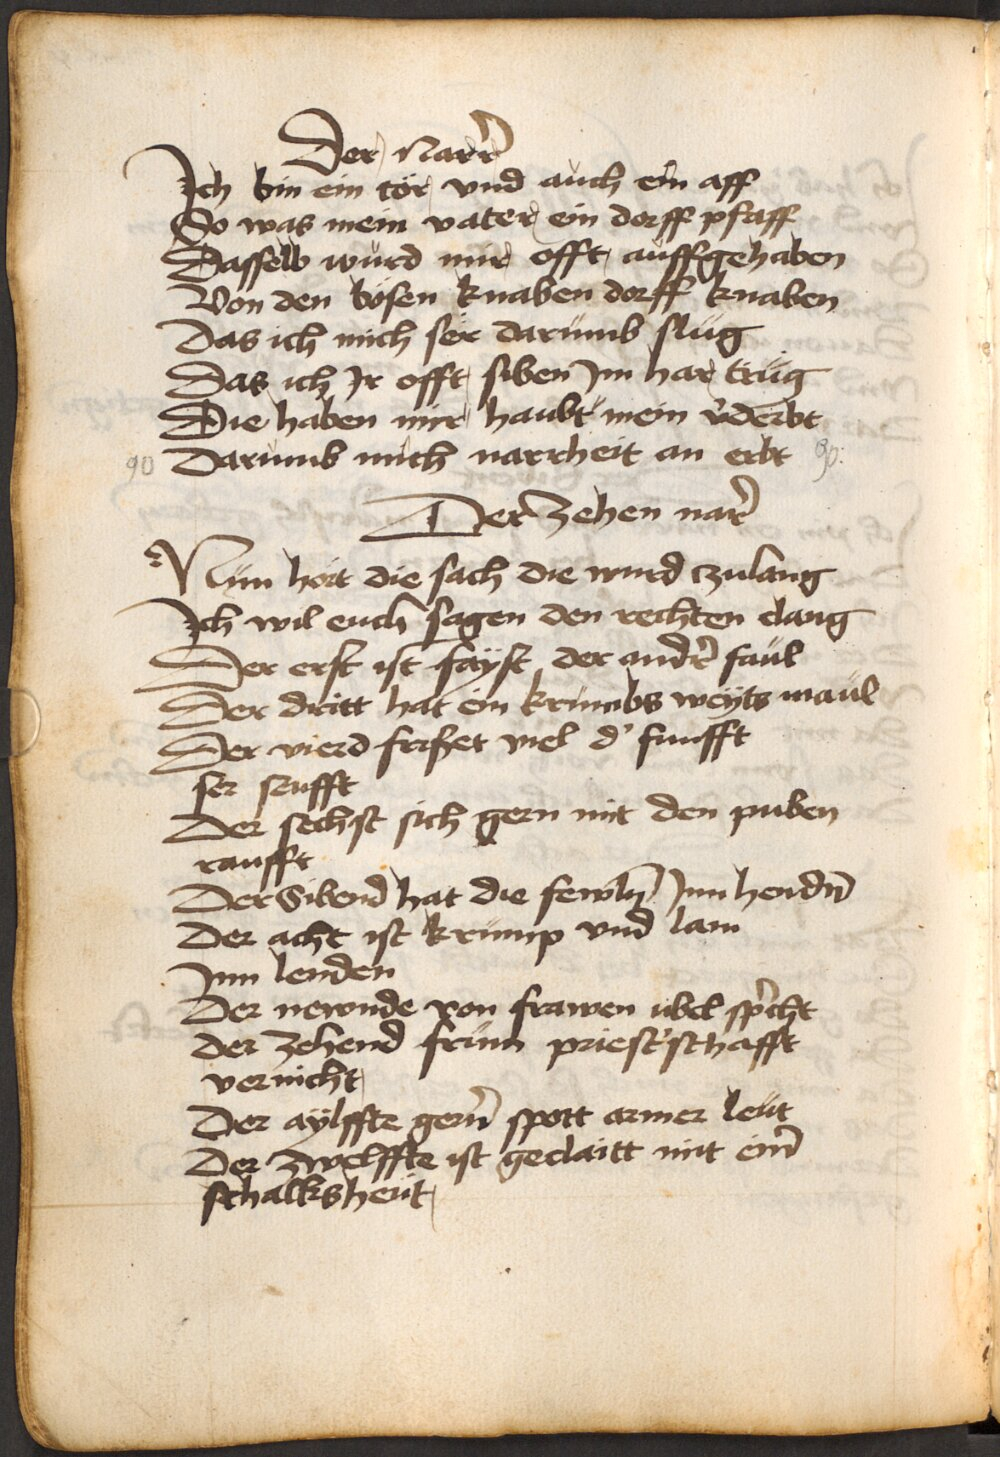 Der Narr̃
Ich bin ein tör vnd auch ein aff
So was mein vater ein dorff pfaff
Dasselb würd mir offt auffgehaben
Von den bösen knaben dorff knaben
Das ich mich ser darümb slüg
Das ich Jr offt siben Jm har trüg
Die haben mir haubt mein v̉derbt
90 Darumb mich narrheit an erbt 90.
Der zehen nar̃
Nün hört die sach die wurd zulang
Ich wil euch sagen den rechten clang
Der erst ist fayst der ander̃ faül
Der dritt hat ein krumbs weyts maül
Der vierd frißet viel d' funfft
ser seufft
Der sechst sich gern mit den puben
raufft
Der Sibend hat die fewln̄ Jnn hendn̄
Der acht ist krümp vnd lam
Jnn lenden
Der newnde von frawen übel sp̃icht
der zehend frün priest'schafft
vernicht
Der aylffte gern̄ spott armer leüt
Der zwelffte ist geclaitt mit ein̄
schalksheüt